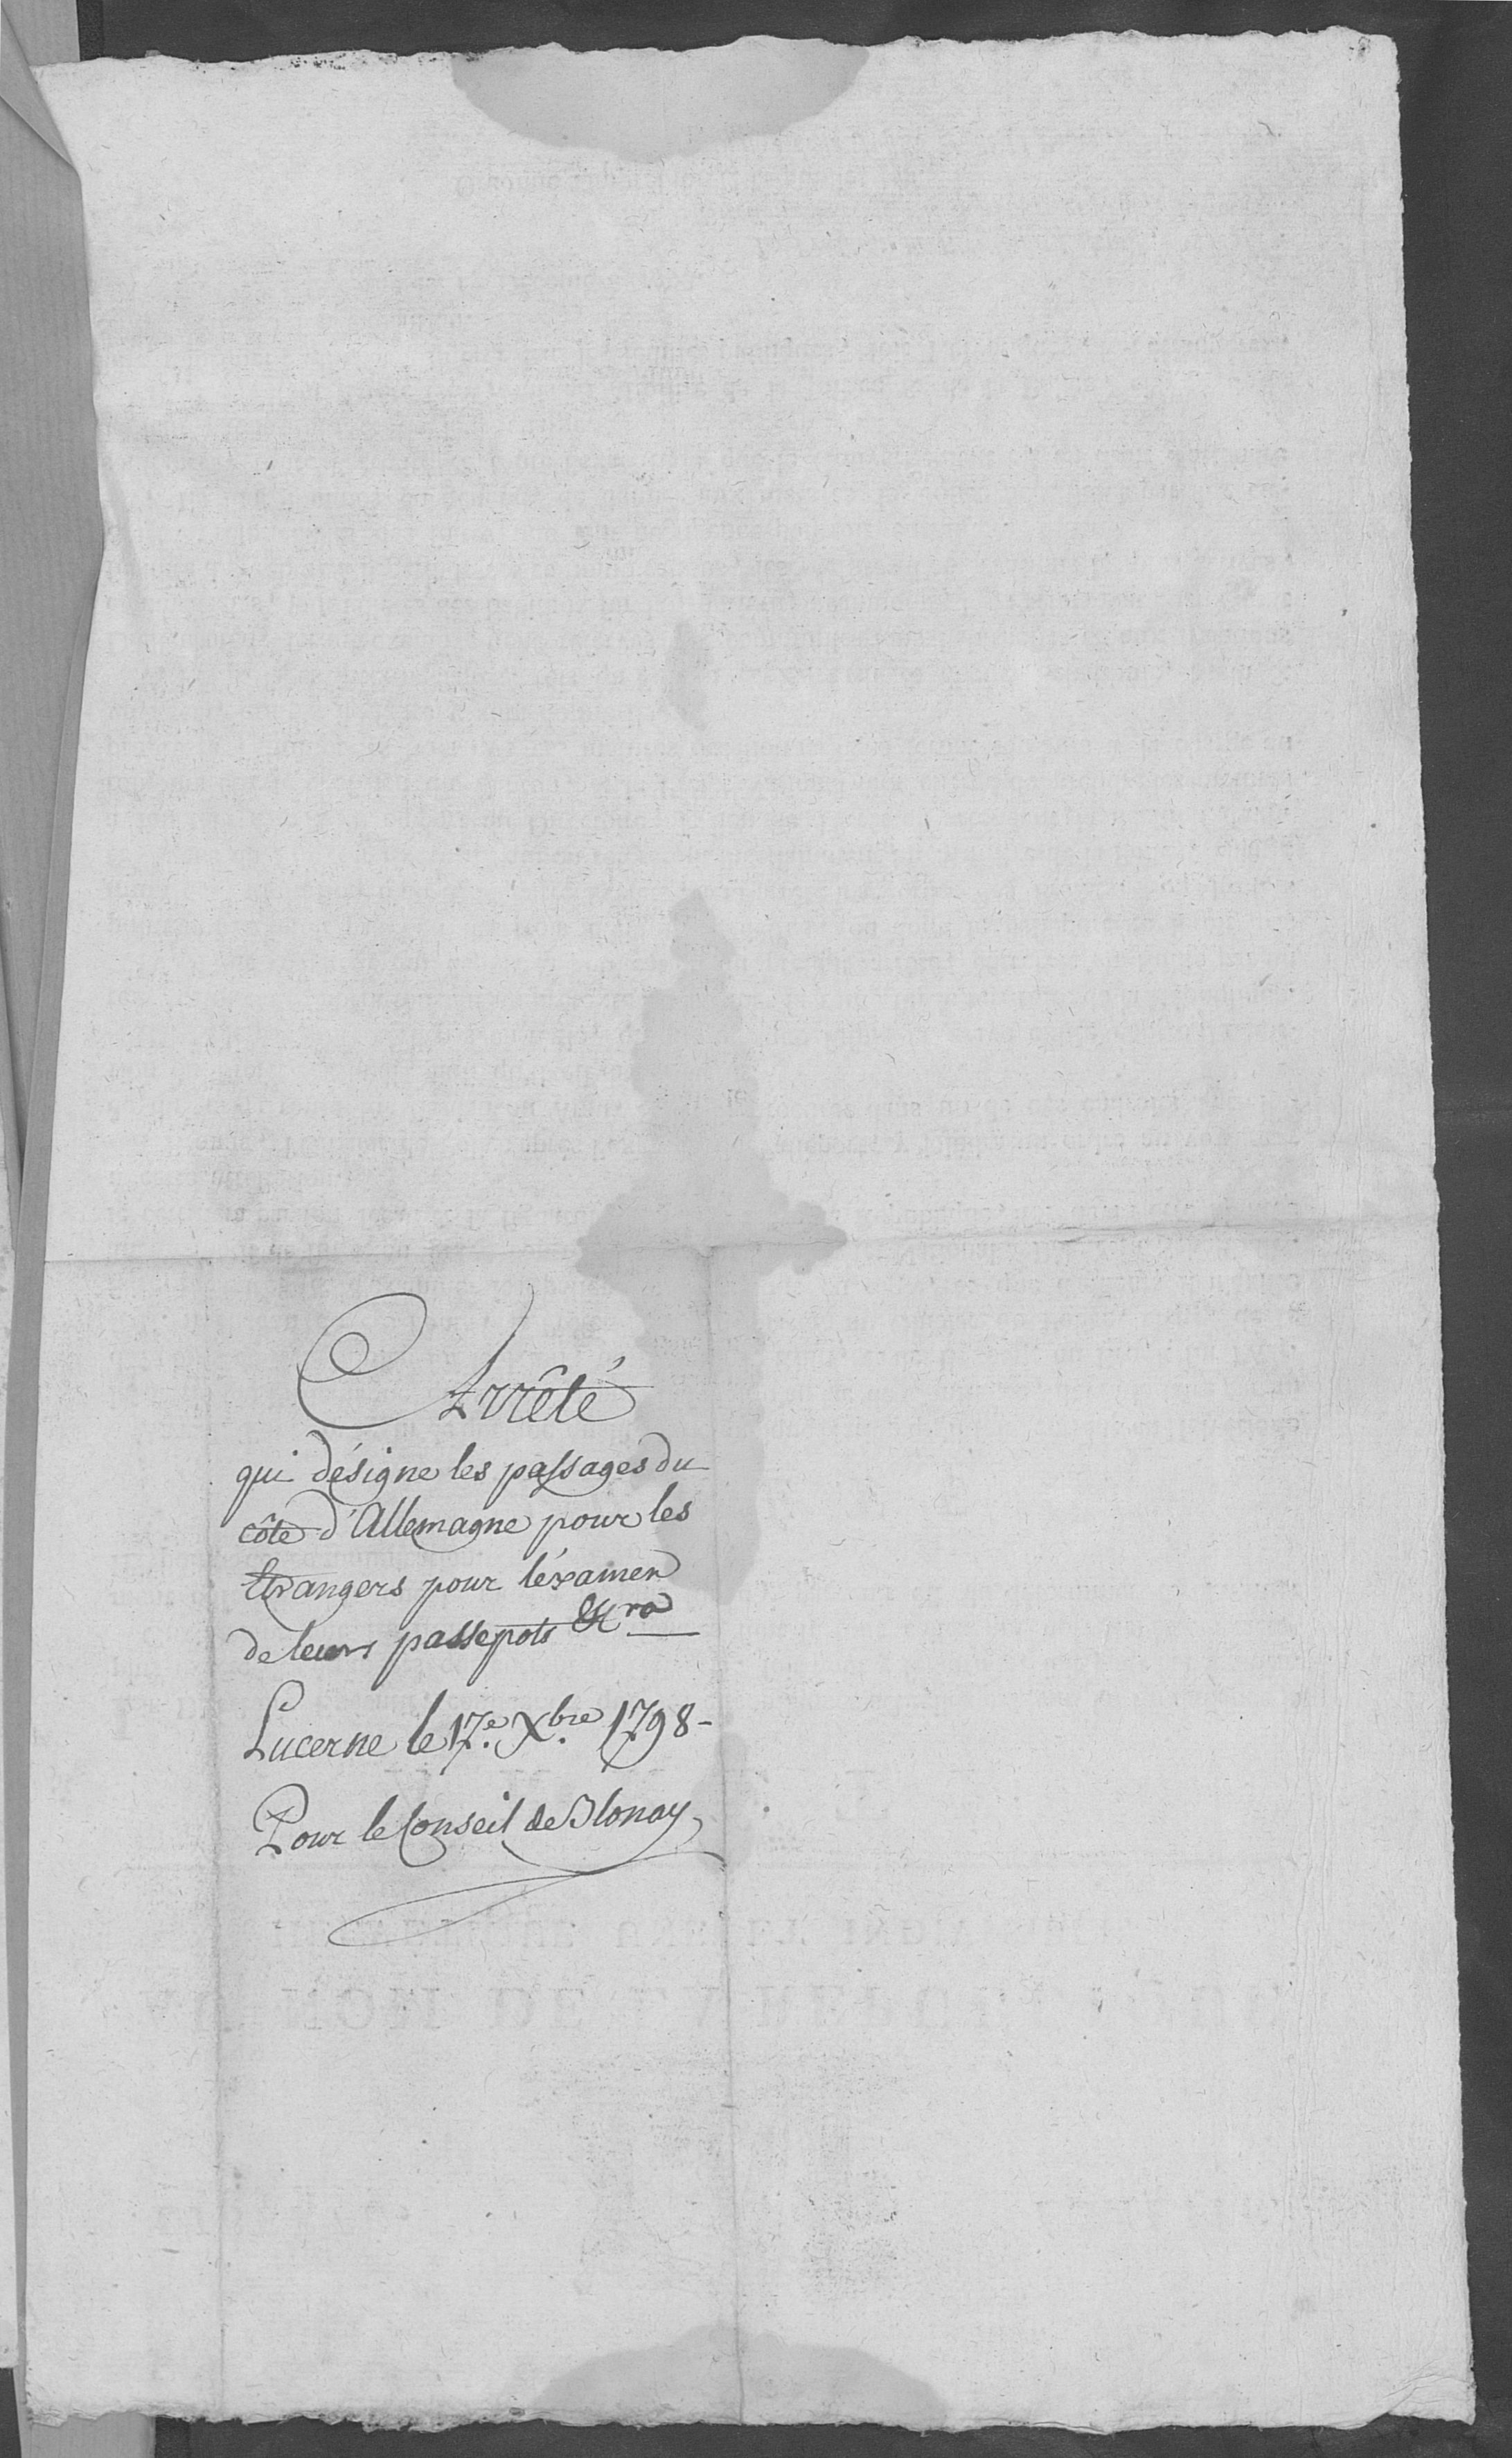 Arrêté
qui désigne les passages du
côté d'Allemagne pour les
Etrangers pour l'éxamen
de leurs passepots &cra
Lucerne le 17.e Xbre 1798-
Pour le Conseil de Blonay,